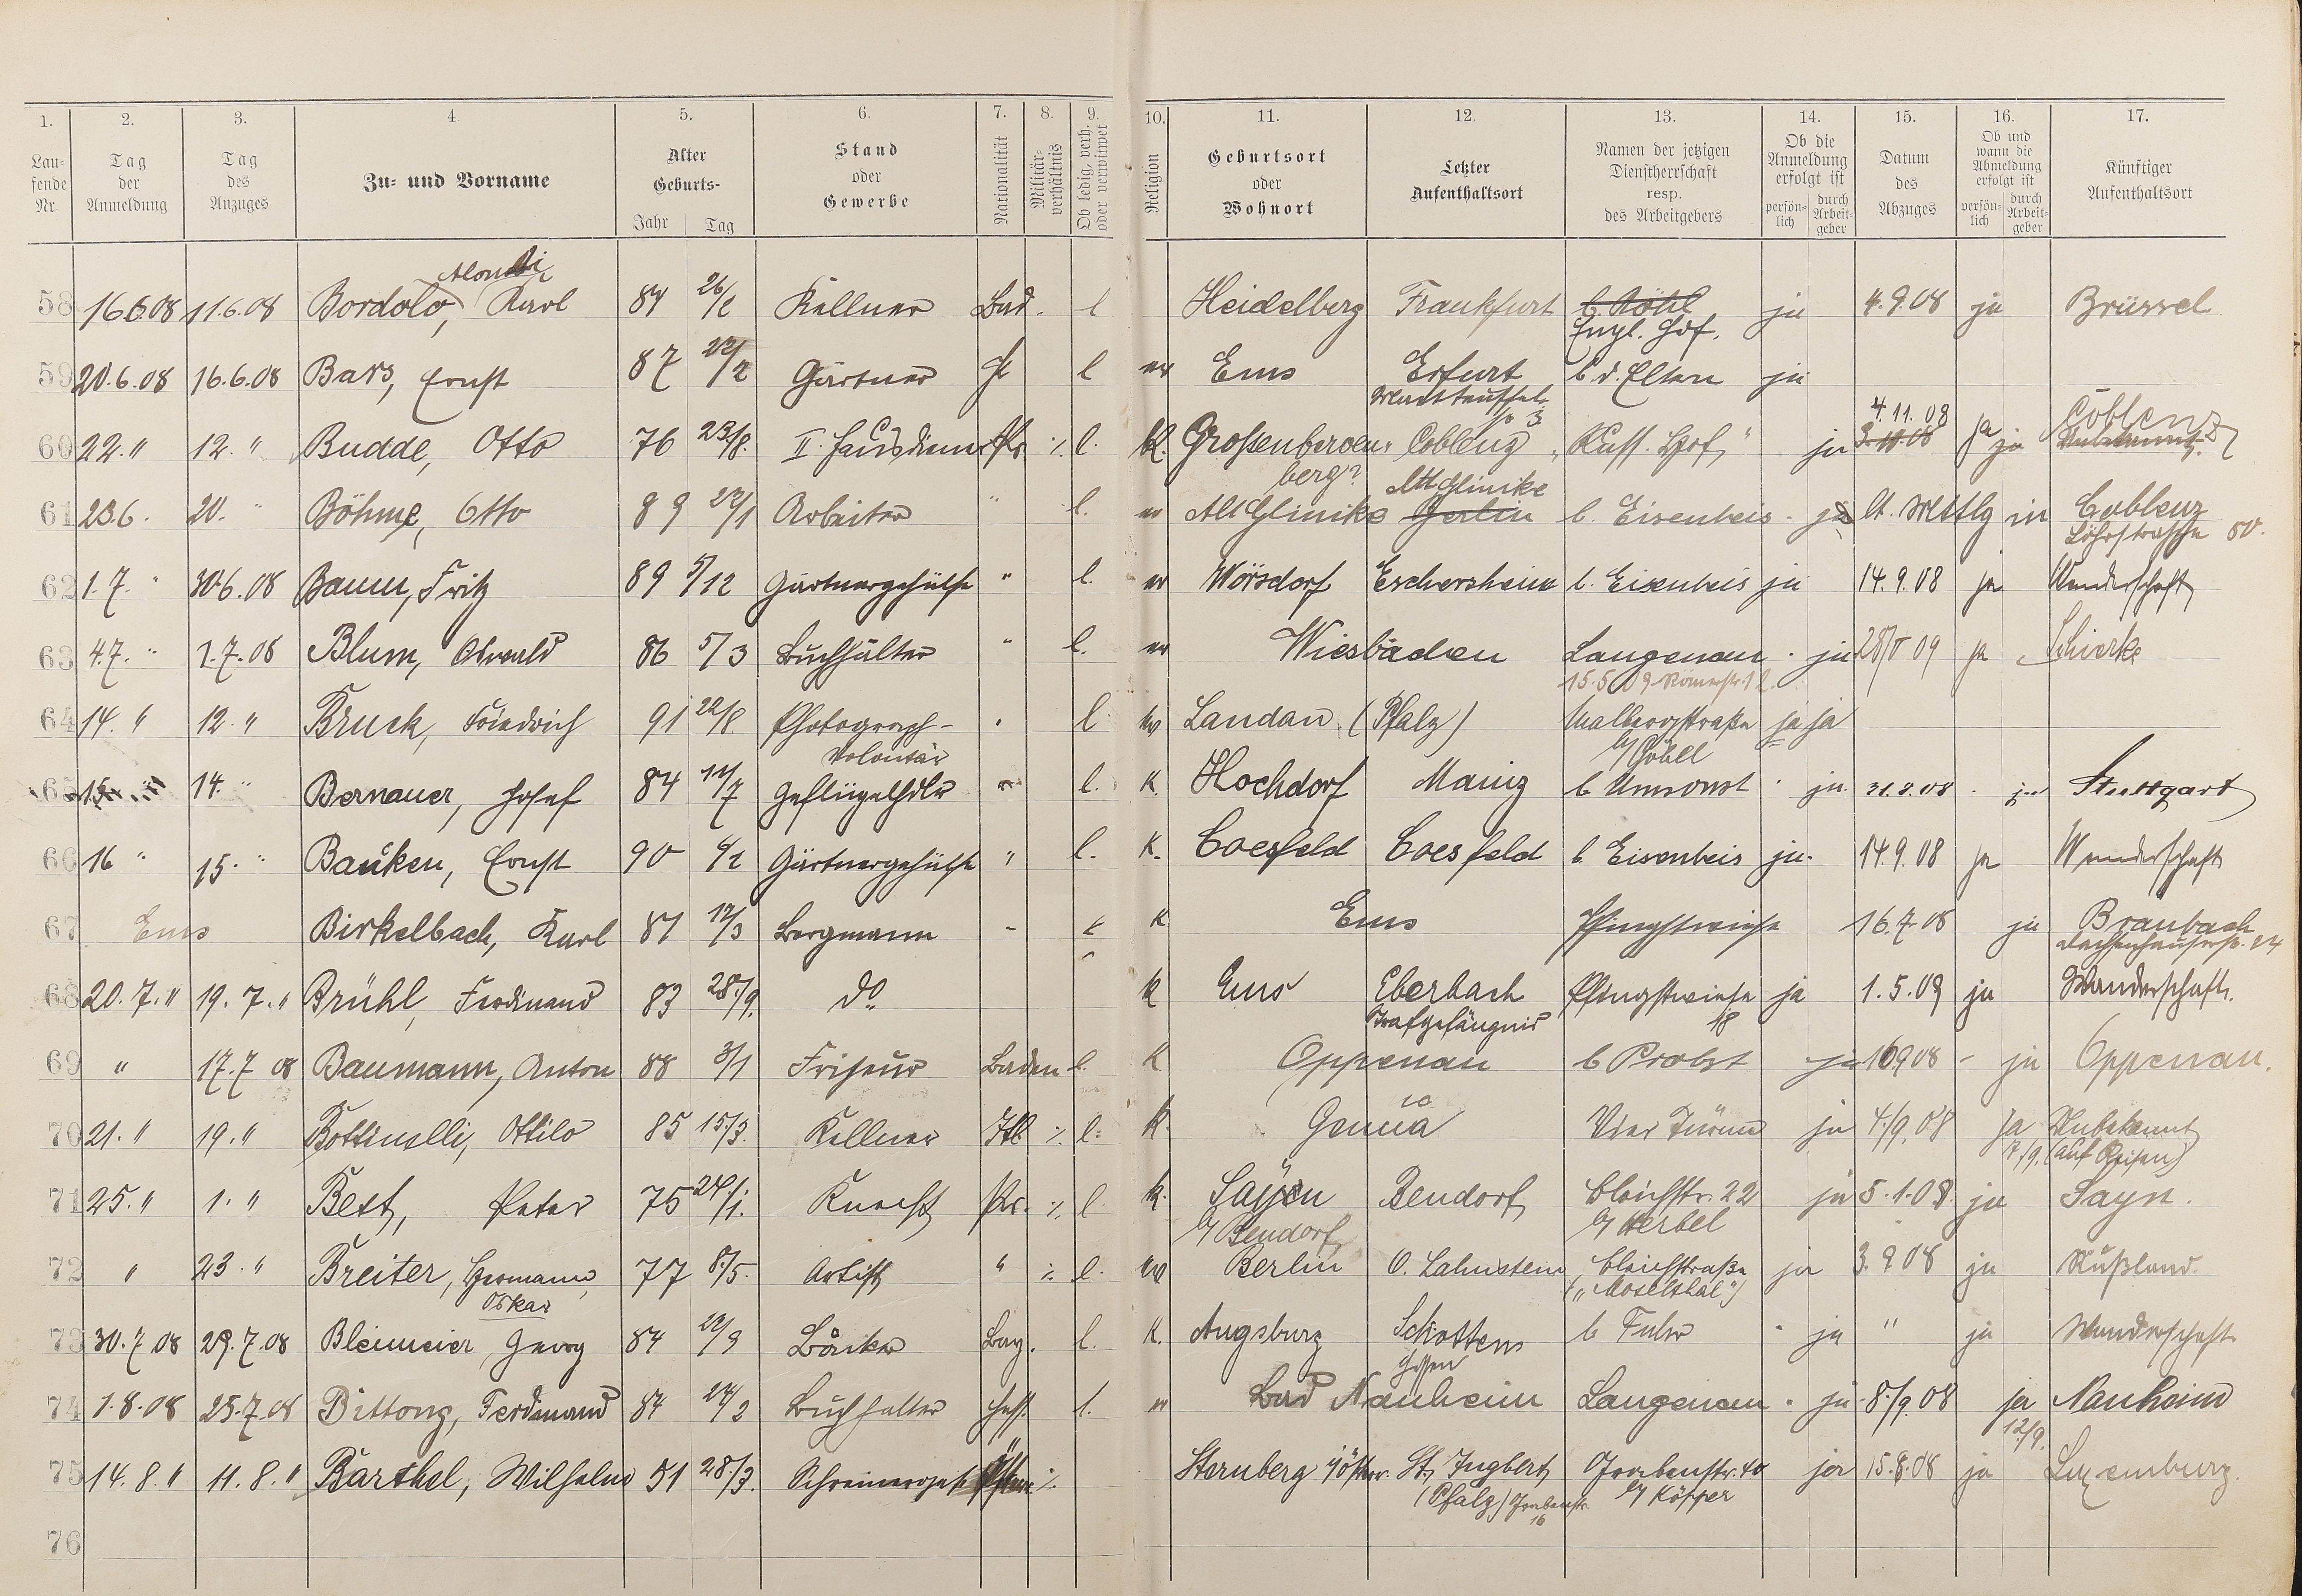 1. 2. 3. 4. 5. 6. 7. 8. 9. 10. 11. 12. 13. 14. 15. 16. 17.
Laufende Nr. Tag der Anmeldung Tag des Anzuges Zu- und Vorname Alter Geburts- Jahr Tag Stand oder Gewerbe Nationalität Militärverhältnis Ob ledig, verh. oder verwitwet Religion Geburtsort oder Wohnort Letzter Aufenthaltsort Namen der jetzigen Dienstherrschaft resp. des Arbeitgebers Ob die Anmeldung erfolgt ist persönlich durch Arbeitgeber Datum des Abzuges Ob und wann die Abmeldung erfolgt ist persönlich durch Arbeitgeber Künftiger Aufenthaltsort
58 16.6.08 11.6.08 Bordolo, Karl 84 26/2 Kellner Bad. l Heidelberg Frankfurt b. Röhl ja 4.9.08 ja Brüssel
Engl. Hof.
59 20.6.08 16.6.08 Bars, Ernst 87 22/2 Gärtner l ev Ems Erfurt b. d. Eltern ja
60 22. " 12. " Budde, Otto 76 23/8. II. Hausdiener Pr. ·/. l. K. Großenberoen Coblenz "Russ. Hof" ja 3.11.08 ja Unbekannt.
berg? 4.11.08 ja Coblenz
61 23.6. 20. " Böhme, Otto 89 22/1 Arbeiter " l. ev Alt Glinike Berlin b. Eisenbeis ja lt. Mttlg in Coblenz
Alt Glinike Löhrstrasse 50.
62 1.7. " 30.6.08 Baum, Fritz 89 5/12 Gärtnergehülfe " l. ev Wörsdorf Eschersheim b. Eisenbeis ja 14.9.08 ja Wanderschaft
63 4.7. " 1.7.08 Blum, Oswald 86 5/3 Buchhalter " l. ev Wiesbaden Langenau ja 28/V 09 ja Schierke
15.5.09 Römerstr. 12.
64 14. " 12. " Bruck, Friedrich 91 22/8. Photograph- " l ev Landau (Pfalz) Malbergstraße ja ja
Volontär b/ Göbel
65 15. " 14. " Bernauer, Josef 84 11/7 Geflügelhdlr " l. K. Hochdorf Mainz b Umsonst ja 31.8.08 ja Stuttgart
66 16 " 15. " Bauken, Ernst 90 Gärtnergehülfe " l. K. Coesfeld Coesfeld b Eisenbeis ja. 14.9.08 ja Wanderschaft
67 Ems Birkelbach, Karl 81 12/3 Bergmann - K Ems Pfingstwiese 16.7.08 ja Braubach
68 20.7. " 19.7. " Brühl, Ferdinand 83 28./9. do K Ems Eberbach Pfingstwiese ja 1.5.09 ja Wanderschaft.
Strafgefängnis 18
69 " 17.7 08 Baumann, Anton 88 3/1 Friseur Baden l. K Oppenau b Probst ja 16.9.08 - ja Oppenau.
70 21. " 19. " Bottinelli, Ottilo 85 15/3. Kellner Itl. ·/. l. K. Genua Vier Türme ja 4./9.08 ja Unbekannt
7/9. (auf Reisen)
71 25. " 1. " Bett, Peter 75 24/1. Knecht Pr. ·/. l K. Sayn Bendorf Bleichstr. 22 ja 5.1.08. ja Sayn.
b/ Bendorf b/ Herbel
72 " 23. " Breiter, Hermann, 77 8./5. Artist " ·/. l. ev Berlin O. Lahnstein Bleichstraße ja 3.9.08 ja Rußland.
Oskar ("Moselthal")
73 30.7.08 29.7.08 Bleimeier, Georg 84 22/9 Bäcker Bay. l. K. Augsburg Schotten b Fuhr ja " ja Wanderschaft
Hessen
74 1.8.08 25.7.08 Bittong, Ferdinand 84 24/2 Buchhalter Hess. l. ev Bad Nauheim Langenau ja 8./9.08 ja Nauheim
12/9.
75 14.8. " 11.8. " Barthel, Wilhelm 51 28./3. Schreinerges. Österr. ·/. Sternberg i/Österr. St. Ingbert Grabenstr. 40 ja 15.8.08 ja Luxemburg.
(Pfalz) Grabenstr. 16 b/ Köpper
76